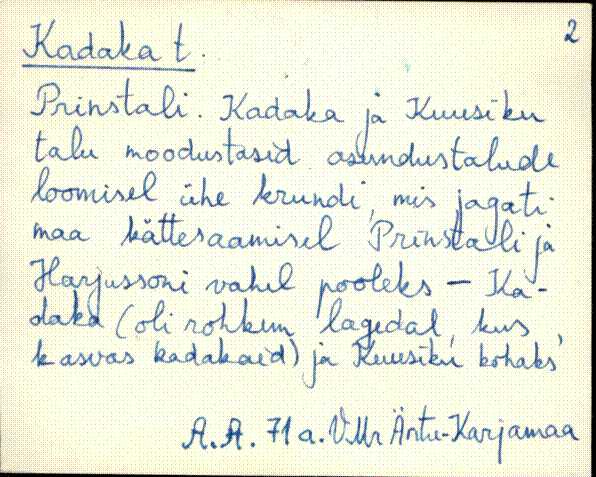 2
Kadaka t.
Prinstali. Kadaka ja Kuusiku
talu moodustasid asundustalude
loomisel ühe krundi, mis jagati
maa kättesaamisel Prinstali ja
Harjussoni vahel pooleks – Ka-
daka (oli rohkem lagedal, kus
kasvas kadakaid) ja Kuusiku kohaks
A.A. 71 a. VMr Äntu-Karjamaa